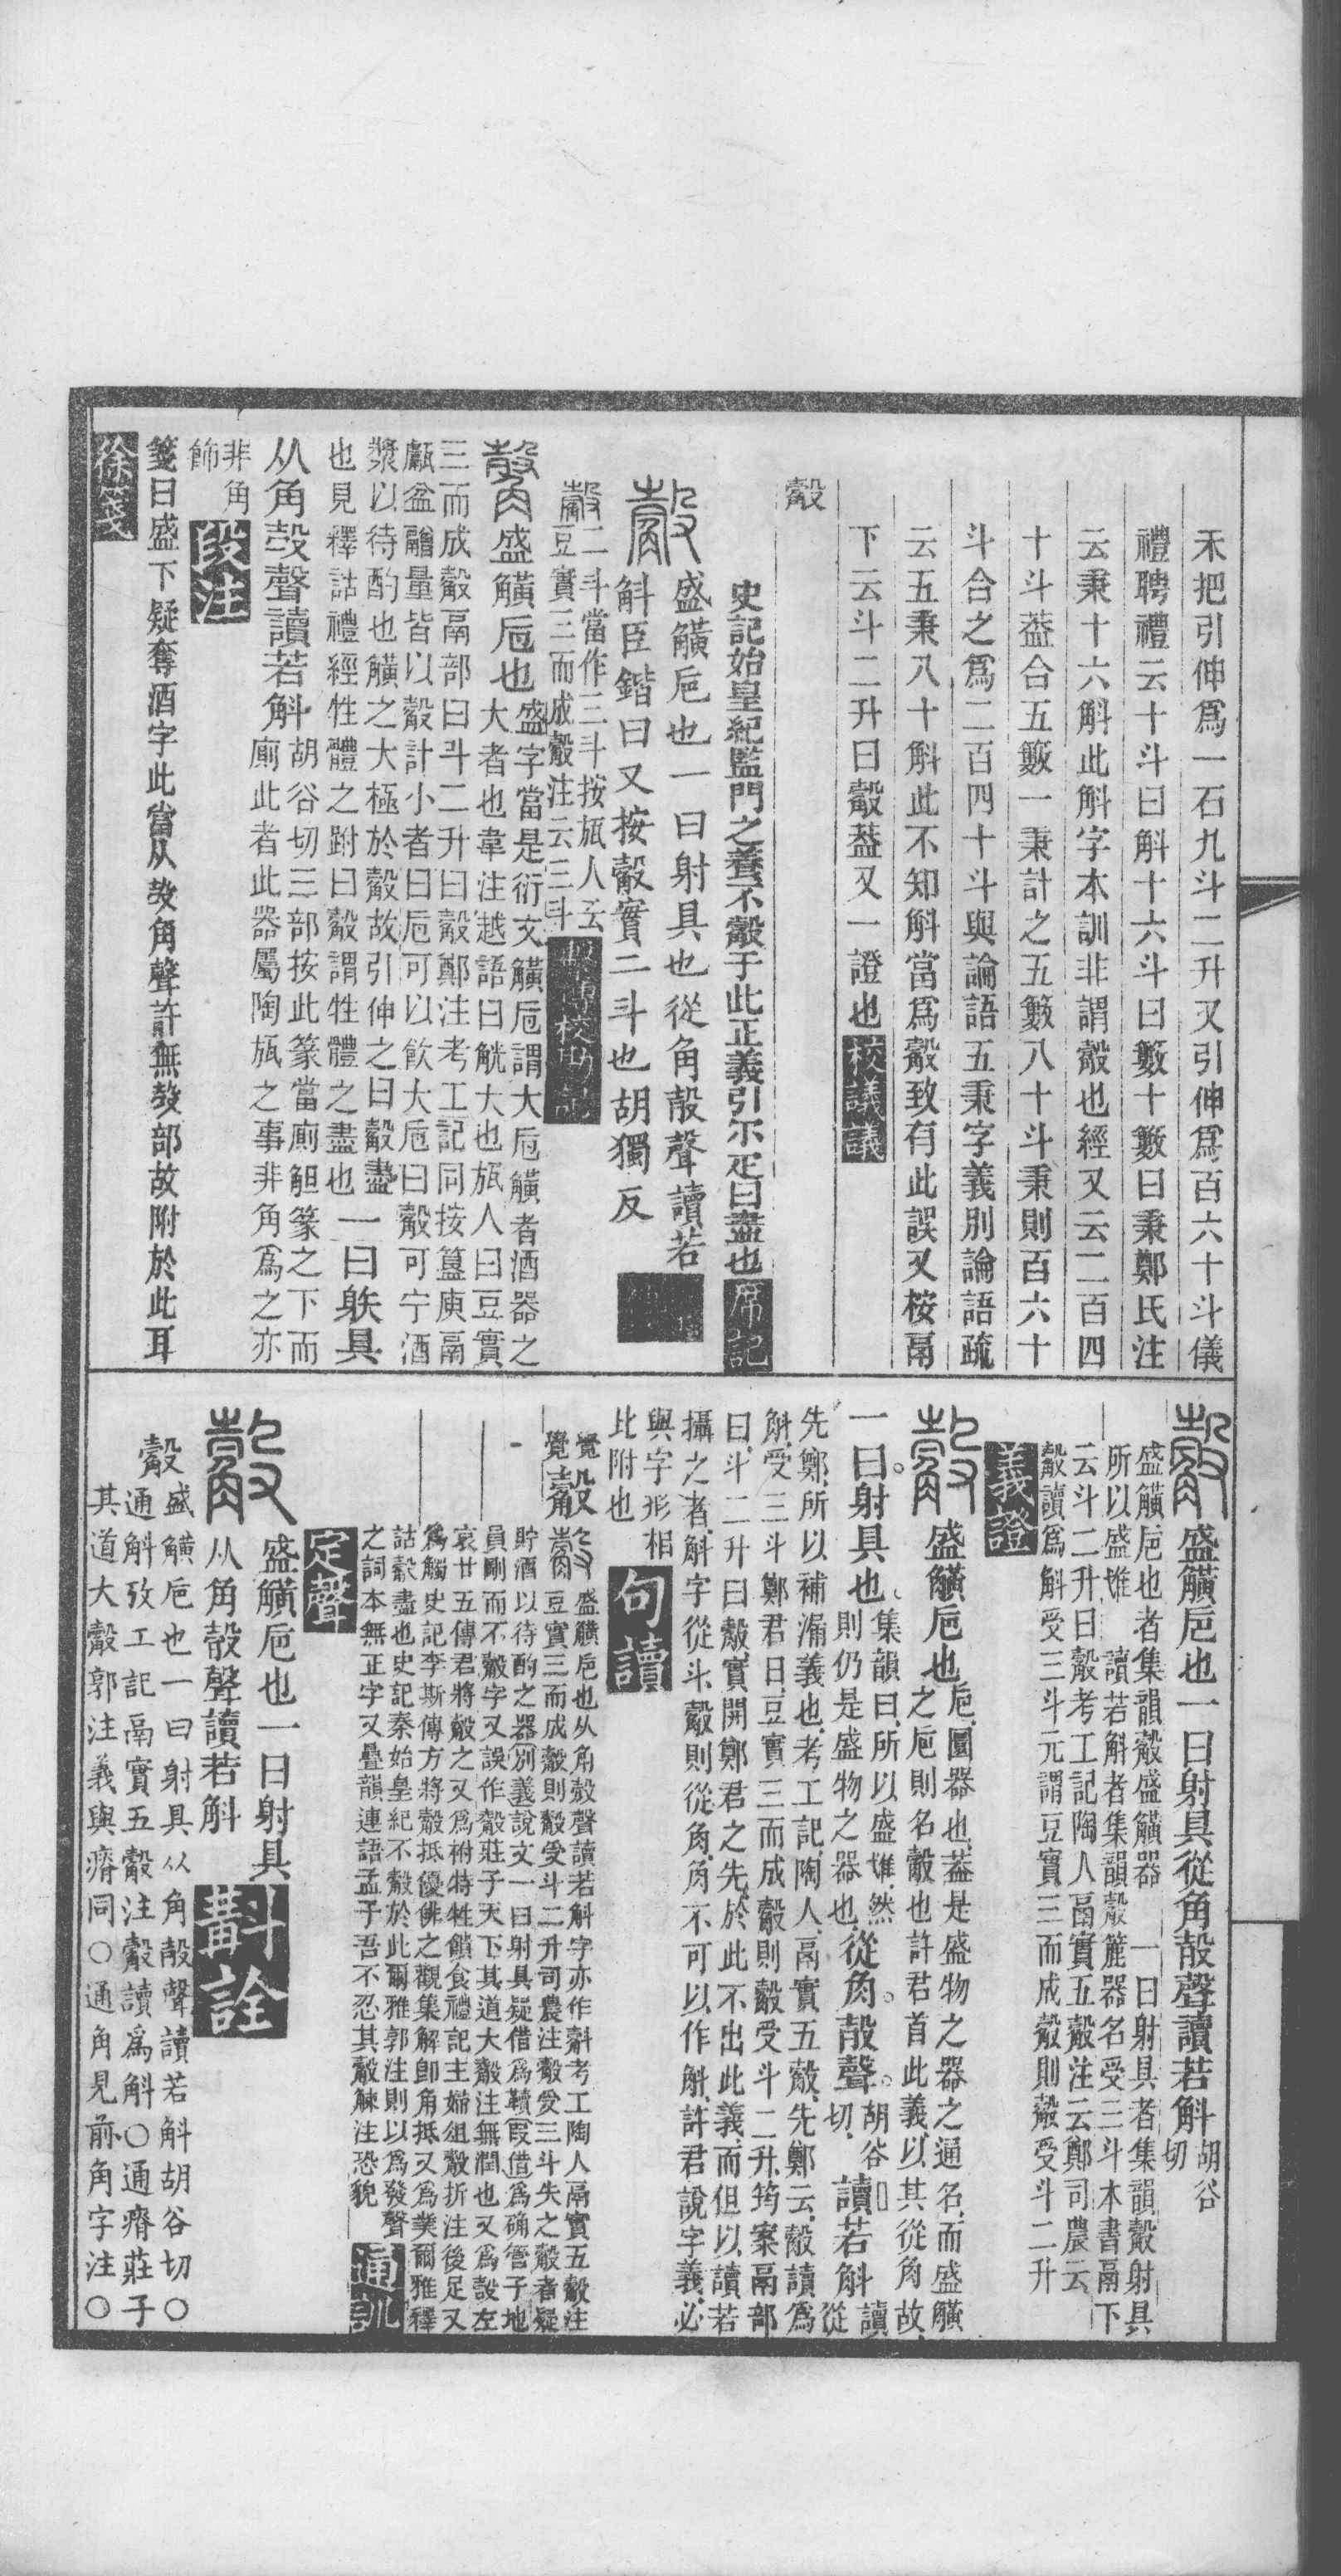 禾把引伸爲一石九斗二升又引伸爲百六十斗儀
禮聘禮云十斗曰斛十六斗曰籔十籔曰秉鄭氏注
云秉十六斛此斛字本訓非謂觳也經又云二百四
十斗葢合五籔一秉計之五籔八十斗秉則百六十
斗合之爲二百四十斗與論語五秉字義別論語疏
云五秉八十斛此不知斛當爲觳致有此誤又桉鬲
下云斗二升曰觳葢又一證也校議議
觳
史記始皇紀監門之養不觳于此正義引尔疋曰盡也席記
盛觵巵也一曰射具也從角㱿聲讀若
斛臣鍇曰又按觳實二斗也胡獨反
觳二斗當作三斗按瓬人云
豆實三而成觳注云三斗
盛觵巵也盛字當是衍文觵巵謂大巵觵者酒器之
大者也韋注越語曰觥大也瓬人曰豆實
三而成觳鬲部曰斗二升曰觳鄭注考工記同按簋庾鬲
甗盆甑量皆以觳計小者曰巵可以飮大巵曰觳可宁酒
漿以待酌也觵之大極於觳故引伸之曰觳盡
也見釋詁禮經牲體之跗曰觳謂牲體之盡也一曰䠶具
从角㱿聲讀若斛胡谷切三部按此篆當廁觛篆之下而
廁此者此器屬陶瓬之事非角爲之亦
非角
飾段注
箋曰盛下疑奪酒字此當从㱿角聲許無㱿部故附於此耳
徐箋
盛觵巵也一曰射具從角㱿聲讀若斛胡谷
切
盛觵巵也者集韻觳盛觵器 一曰射具者集韻觳射具
所以盛雉 讀若斛者集韻觳䈪器名受三斗本書鬲下
云斗二升曰觳考工記陶人鬲實五觳注云鄭司農云
觳讀爲斛受三斗元謂豆實三而成觳則觳受斗二升
義證
盛觵巵也巵圜器也葢是盛物之器之通名而盛觵
之巵則名觳也許君首此義以其從角故
一曰射具也集韻曰所以盛雉然
則仍是盛物之器也從角㱿聲胡谷
切讀若斛讀
從
先鄭所以補漏義也考工記陶人鬲實五觳先鄭云觳讀爲
斛受三斗鄭君曰豆實三而成觳則觳受斗二升筠案鬲部
曰斗二升曰觳實開鄭君之先於此不出此義而但以讀若
攝之者斛字從斗觳則從角角不可以作斛許君說字義必
與字形相
此附也句讀
觳盛觵巵也从角㱿聲讀若斛字亦作䚫考工陶人鬲實五觳注
豆實三而成觳則觳受斗二升司農注觳受三斗失之觳者疑
貯酒以待酌之器別義說文一曰射具疑借爲韥叚借爲确管子地
員剛而不觳字又誤作觳莊子天下其道大觳注無潤也又爲㱿左
哀廿五傳君將㱿之又爲跗特牲饋食禮記主婦俎觳折注後足又
爲觸史記李斯傳方將觳抵優俳之觀集解卽角抵又爲業爾雅釋
詁觳盡也史記秦始皇紀不觳於此爾雅郭注則以爲發聲
之詞本無正字又疊韻連語孟子吾不忍其觳觫注恐貌通訓
定聲
盛觵巵也一曰射具
从角㱿聲讀若斛斠詮
觳盛觵巵也一曰射具从角㱿聲讀若斛胡谷切○
通斛攷工記鬲實五觳注觳讀爲斛○通瘠莊子
其道大觳郭注義與瘠同○通角見前角字注○